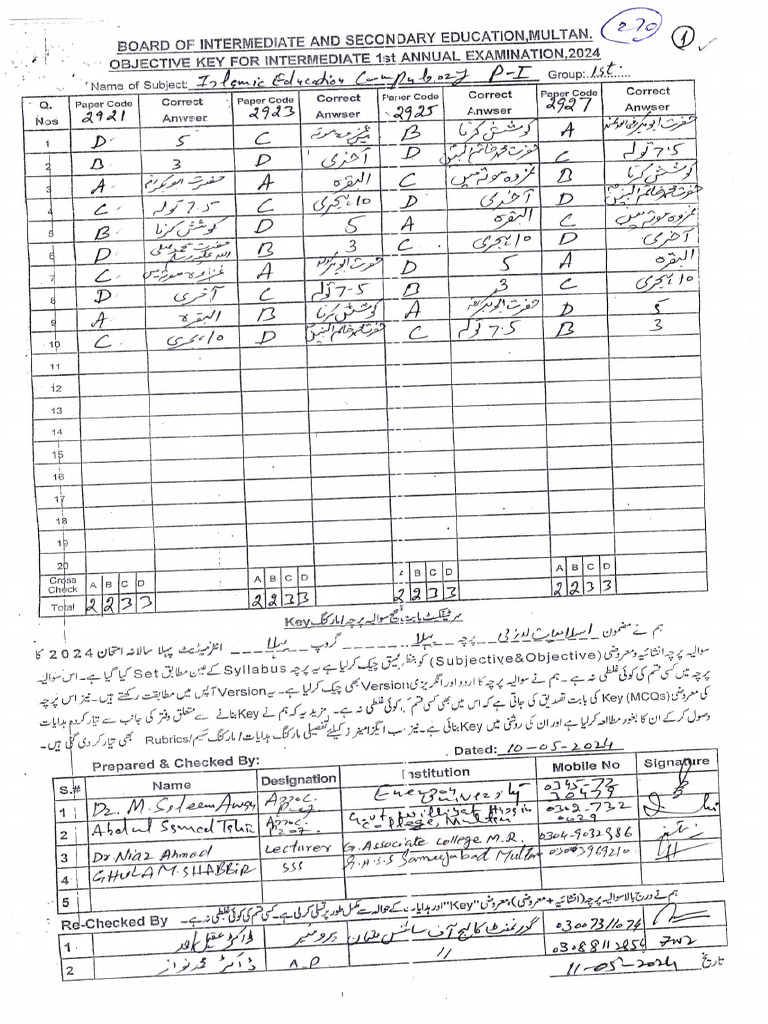 270
1
BOARD OF INTERMEDIATE AND SECONDARY EDUCATION,MULTAN.
OBJECTIVE KEY FOR INTERMEDIATE 1st ANNUAL EXAMINATION,2024
Name of Subject: Islamic Education Compulsory P-I Group: 1st
Q. Nos Paper Code 2921 Correct Anwser Paper Code 2923 Correct Anwser Paper Code 2925 Correct Anwser Paper Code 2927 Correct Anwser
1 D 5 C B کوشش کرنا A
2 B 3 D آخری D C 7.5 تولہ
3 A A البقرہ C غزوہ موتہ میں B کوشش کرنا
4 C 7.5 تولہ C 10 ہجری D آخری D
5 B کوشش کرنا D 5 A البقرہ C غزوہ موتہ میں
6 D B 3 C 10 ہجری D آخری
7 C غزوہ موتہ میں A D 5 A البقرہ
8 D آخری C 7.5 تولہ B 3 C 10 ہجری
9 A البقرہ B کوشش کرنا A D 5
10 C 10 ہجری D C 7.5 تولہ B 3
11
12
13
14
15
16
17
18
19
20
Cross Check A B C D A B C D A B C D A B C D
Total 2 2 3 3 2 2 3 3 2 2 3 3 2 2 3 3
Key
ہم نے مضمون اسلامیات لازمی پرچہ پہلا گروپ پہلا انٹرمیڈیٹ پہلا سالانہ امتحان 2024 کا
سوالیہ پرچہ انشائیہ و معروضی (Subjective&Objective) کو چیک کر لیا ہے یہ پرچہ Syllabus کے عین مطابق Set کیا گیا ہے۔ اس سوالیہ
پرچہ میں کسی قسم کی کوئی غلطی نہ ہے۔ ہم نے سوالیہ پرچہ کا اردو اور انگریزی Version بھی چیک کر لیا ہے۔ یہ Version آپس میں مطابقت رکھتے ہیں۔ نیز اس پرچہ
کی معروضی (MCQs) Key کی بابت تصدیق کی جاتی ہے کہ اس میں بھی کسی قسم کی کوئی غلطی نہ ہے۔ مزید یہ کہ ہم نے Key بنانے سے متعلق دفتر کی جانب سے تیار کردہ ہدایات
وصول کر کے ان کا بغور مطالعہ کر لیا ہے اور ان کی روشنی میں Key بنائی ہے۔ نیز سب ایگزامینرز کیلئے تفصیلی مارکنگ ہدایات/مارکنگ سکیم/Rubrics بھی تیار کر دی گئی ہیں۔
Dated: 10-05-2024
Prepared & Checked By:
S.# Name Designation Institution Mobile No Signature
1 Dr. M. Saleem Awan Assoc. Prof Emerson University 0345-72
2 Abdul Samad Assoc. Prof. College, Multan 0302-732
3 Dr Niaz Ahmad Lecturer G. Associate College M.R. 0304-9032986
4 GHULAM SHABBIR SSS G.H.S.S Multan
5
ہم نے درج بالا سوالیہ پرچہ (انشائیہ + معروضی)، معروضی "Key" اور ہدایات کے حوالہ سے مکمل طور پر تسلی کر لی ہے۔ کسی قسم کی کوئی غلطی نہ ہے۔
Re-Checked By
1 ڈاکٹر گورنمنٹ کالج آف سائنس ملتان 03007311074
2 ڈاکٹر محمد نواز A.P 11 03088112854
تاریخ 11-05-2024